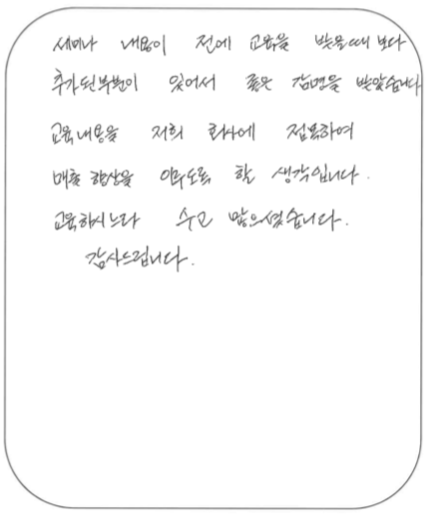 세미나 내용이 전에 교육을 받을때 보다
추가된부분이 있어서 좋은 감명을 받았습니다
교육내용을 저희 회사에 접목하여
매출 향상을 이루도록 할 생각입니다.
교육하시느라 수고 많으셨습니다.
감사드립니다.